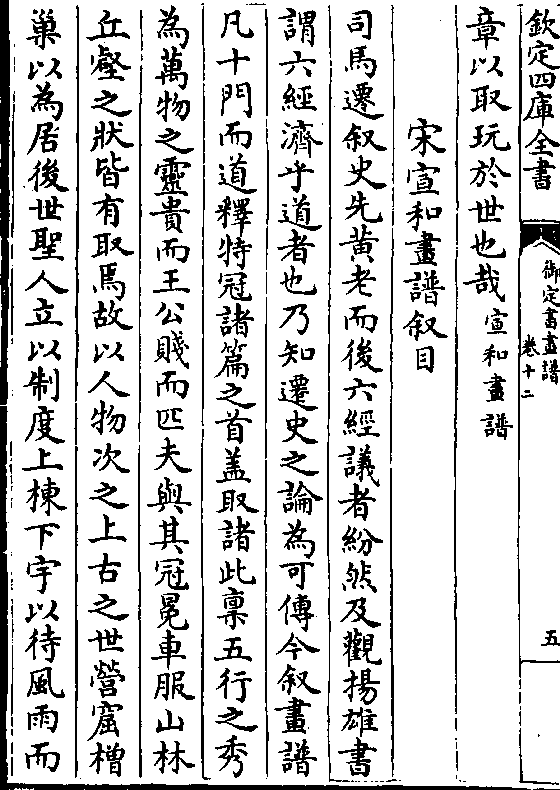 欽定四庫全書
御定書畫譜
卷十二
五
章以取玩於世也哉宣和畫譜
宋宣和畫譜叙目
司馬遷叙史先黄老而後六經議者紛然及觀揚雄書
謂六經濟乎道者也乃知遷史之論為可傳今叙畫譜
凡十門而道釋特冠諸篇之首盖取諸此稟五行之秀
為萬物之靈貴而王公賤而匹夫與其冠冕車服山林
丘壑之狀皆有取焉故以人物次之上古之世營窟橧
巢以為居後世聖人立以制度上棟下宇以待風雨而